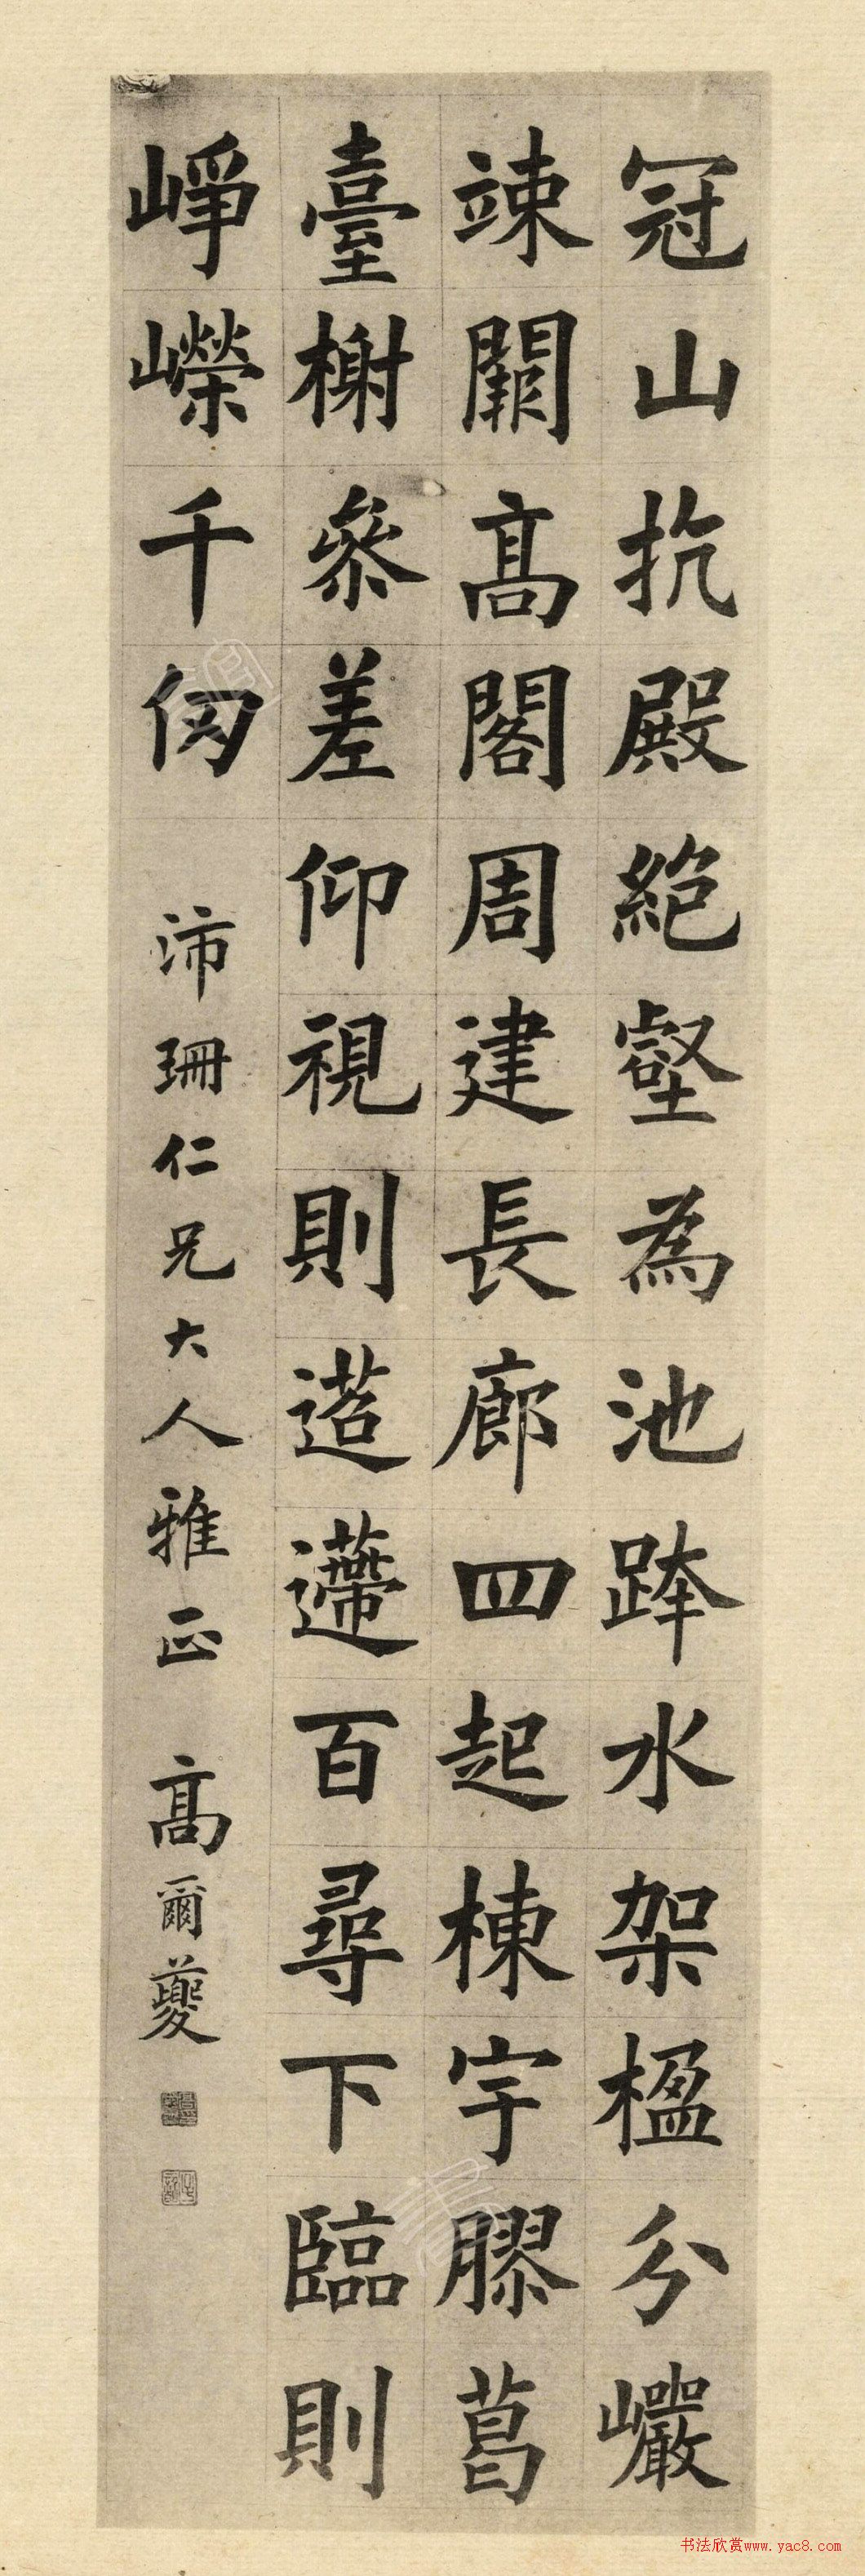 冠山抗殿絶壑為池跨水架楹分巖
竦闕高閣周建長廊四起棟宇膠葛
臺榭參差仰視則迢遰百尋下臨則
崢嶸千仞
沛珊仁兄大人雅正
高爾夔
书法欣赏www.yac8.com